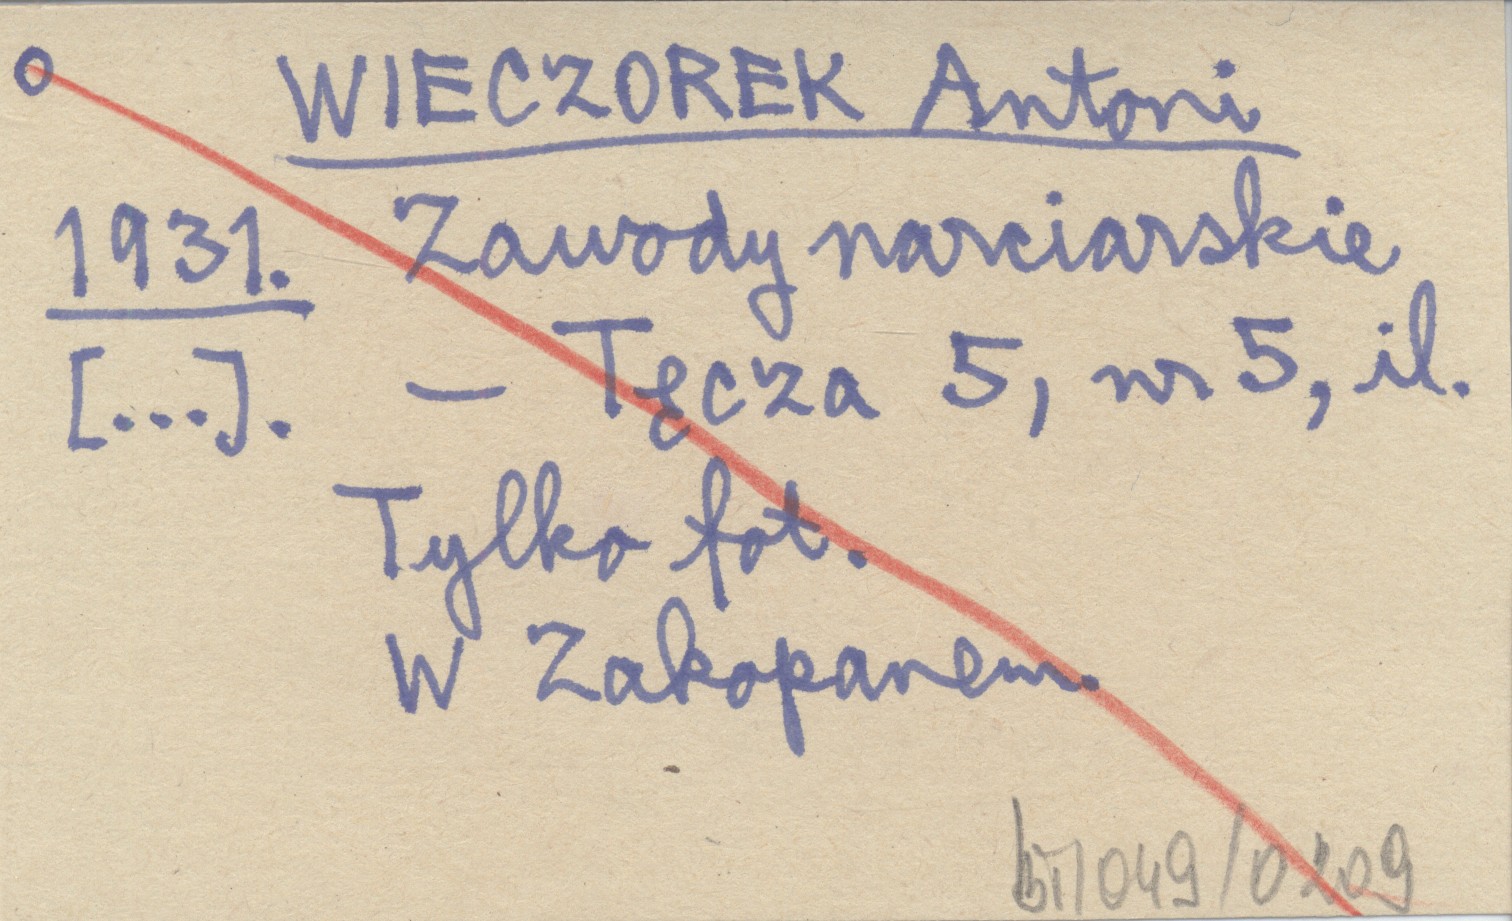 o WIECZOREK Antoni
1931. Zawody narciarskie
[...]. — Tęcza 5, nr 5, il.
Tylko fot.
W Zakopanem.
049/0209